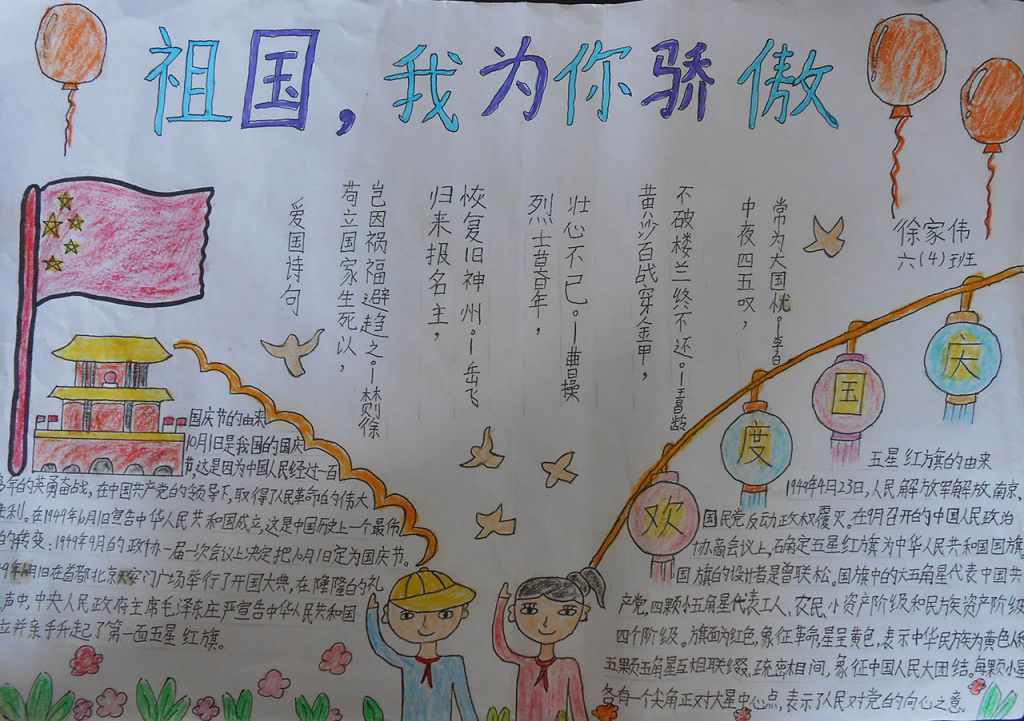 祖国，我为你骄傲
徐家伟
六(4)班
爱国诗句
苟立国家生死以，
岂因祸福避趋之。—林则徐
归来报名主，
恢复旧神州。—岳飞
烈士暮年，
壮心不已。—曹操
黄沙百战穿金甲，
不破楼兰终不还。—王昌龄
中夜四五叹，
常为大国忧。—李白
欢
度
国
庆
国庆节的由来
10月1日是我国的国庆
节,这是因为中国人民经过一百
多年的英勇奋战，在中国共产党的领导下,取得了民革命的伟大
胜利。在1949年6月1日宣告中华人民共和国成立,这是中国历史上一个最伟
的转变.1949年9月的政协一届一次会议上决定把10月1日定为国庆节。
月1日在首都北京天安门广场举行了开国大典,在隆隆的礼
声中,中央人民政府主席毛泽东庄严宣告中华人民共和国
立并亲手升起了第一面五星红旗。
五星红旗的由来
1949年4月23日,人民解放军解放南京、
国民党反动政权覆灭。在9月召开的中国人民政治
协商会议上,确定五星红旗为中华人民共和国国旗
国旗的设计者是曾联松。国旗中的大五角星代表中国共
产党,四颗小五角星代表工人、农民、小资产阶级和民族资产阶级
四个阶级。旗面为红色,象征革命,星呈黄色,表示中华民族为黄色人
五颗五角星互相联缀,疏密相间,象征中国人民大团结。每颗小星
各有一个尖角正对大星中心点,表示了人民对党的向心之意.